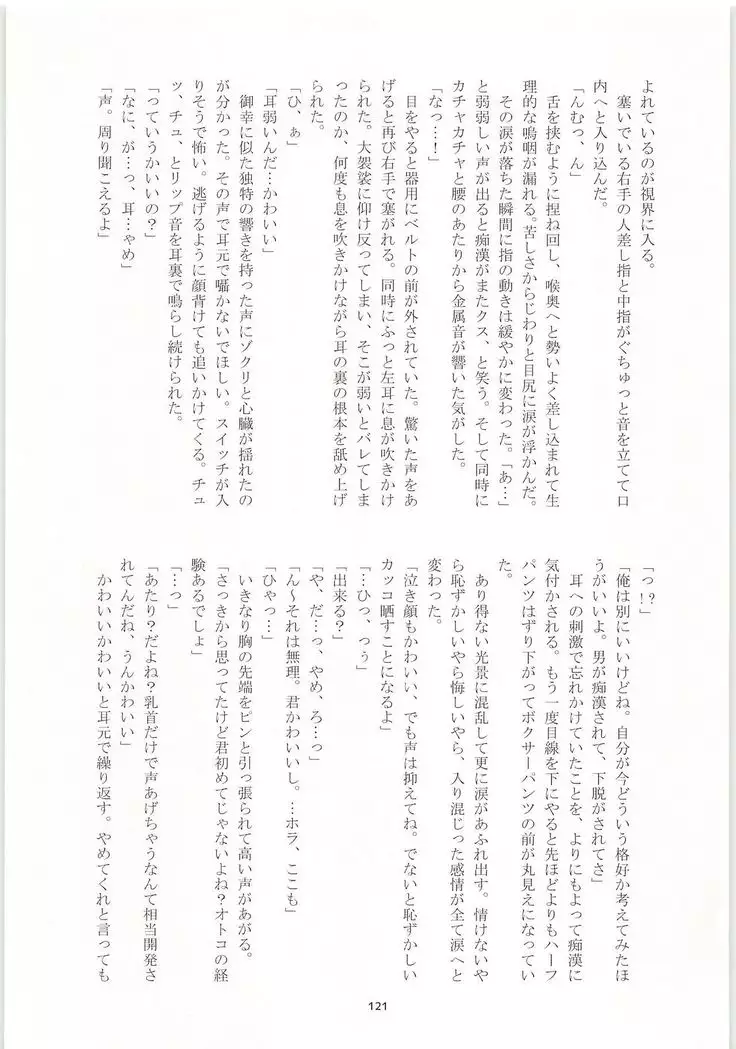 よれているのが視界に入る。
塞いでいる右手の人差し指と中指がぐちゅっと音を立てて口
内へと入り込んだ。
「んむっ、ん」
舌を挟むように捏ね回し、喉奥へと勢いよく差し込まれて生
理的な嗚咽が漏れる。苦しさからじわりと目尻に涙が浮かんだ。
その涙が落ちた瞬間に指の動きは緩やかに変わった。「あ…」
と弱弱しい声が出ると痴漢がまたクス、と笑う。そして同時に
カチャカチャと腰のあたりから金属音が響いた気がした。
「なっ…！」
目をやると器用にベルトの前が外されていた。驚いた声をあ
げると再び右手で塞がれる。同時にふっと左耳に息が吹きかけ
られた。大袈裟に仰け反ってしまい、そこが弱いとバレてしま
ったのか、何度も息を吹きかけながら耳の裏の根本を舐め上げ
られた。
「ひ、ぁ」
「耳弱いんだ…かわいい」
御幸に似た独特の響きを持った声にゾクリと心臓が揺れたの
が分かった。その声で耳元で囁かないでほしい。スイッチが入
りそうで怖い。逃げるように顔背けても追いかけてくる。チュ
ッ、チュ、とリップ音を耳裏で鳴らし続けられた。
「っていうかいいの？」
「なに、が…っ、耳…ゃめ」
「声。周り聞こえるよ」
「っ！？」
「俺は別にいいけどね。自分が今どういう格好か考えてみたほ
うがいいよ。男が痴漢されて、下脱がされてさ」
耳への刺激で忘れかけていたことを、よりにもよって痴漢に
気付かされる。もう一度目線を下にやると先ほどよりもハーフ
パンツはずり下がってボクサーパンツの前が丸見えになってい
た。
あり得ない光景に混乱して更に涙があふれ出す。情けないや
ら恥ずかしいやら悔しいやら、入り混じった感情が全て涙へと
変わった。
「泣き顔もかわいい、でも声は抑えてね。でないと恥ずかしい
カッコ晒すことになるよ」
「…ひっ、っぅ」
「出来る？」
「や、だ…っ、やめ、ろ…っ」
「ん〜それは無理。君かわいいし。…ホラ、ここも」
「ひゃっ…」
いきなり胸の先端をピンと引っ張られて高い声があがる。
「さっきから思ってたけど君初めてじゃないよね？オトコの経
験あるでしょ」
「…っ」
「あたり？だよね？乳首だけで声あげちゃうなんて相当開発さ
れてんだね、うんかわいい」
かわいいかわいいと耳元で繰り返す。やめてくれと言っても
121